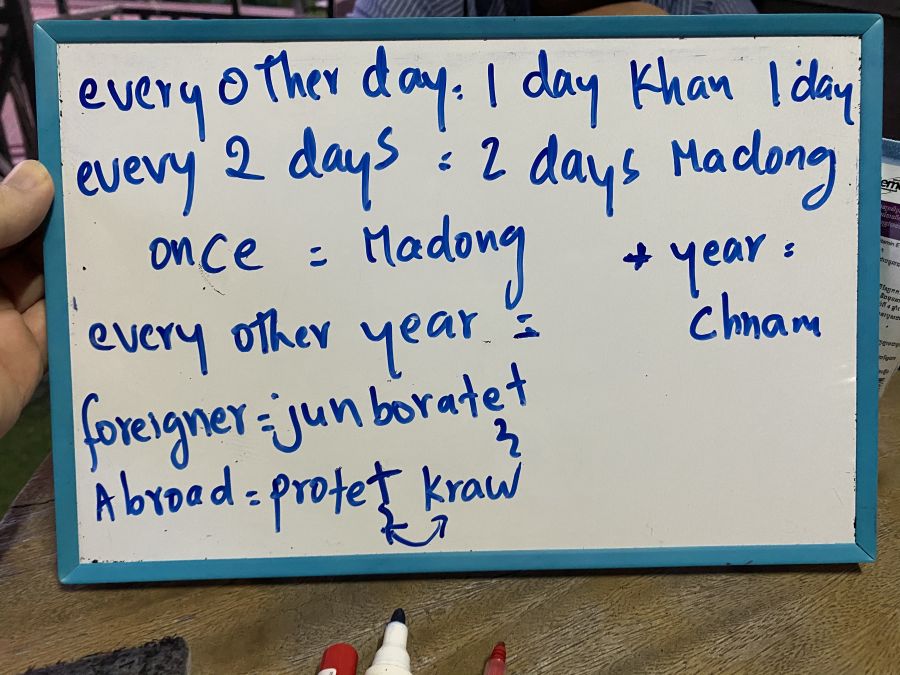 every other day : 1 day Khan 1 day
every 2 days = 2 days Madong
once = Madong
+ year :
Chnam
every other year =
foreigner = junboratet
Abroad = protet kraw